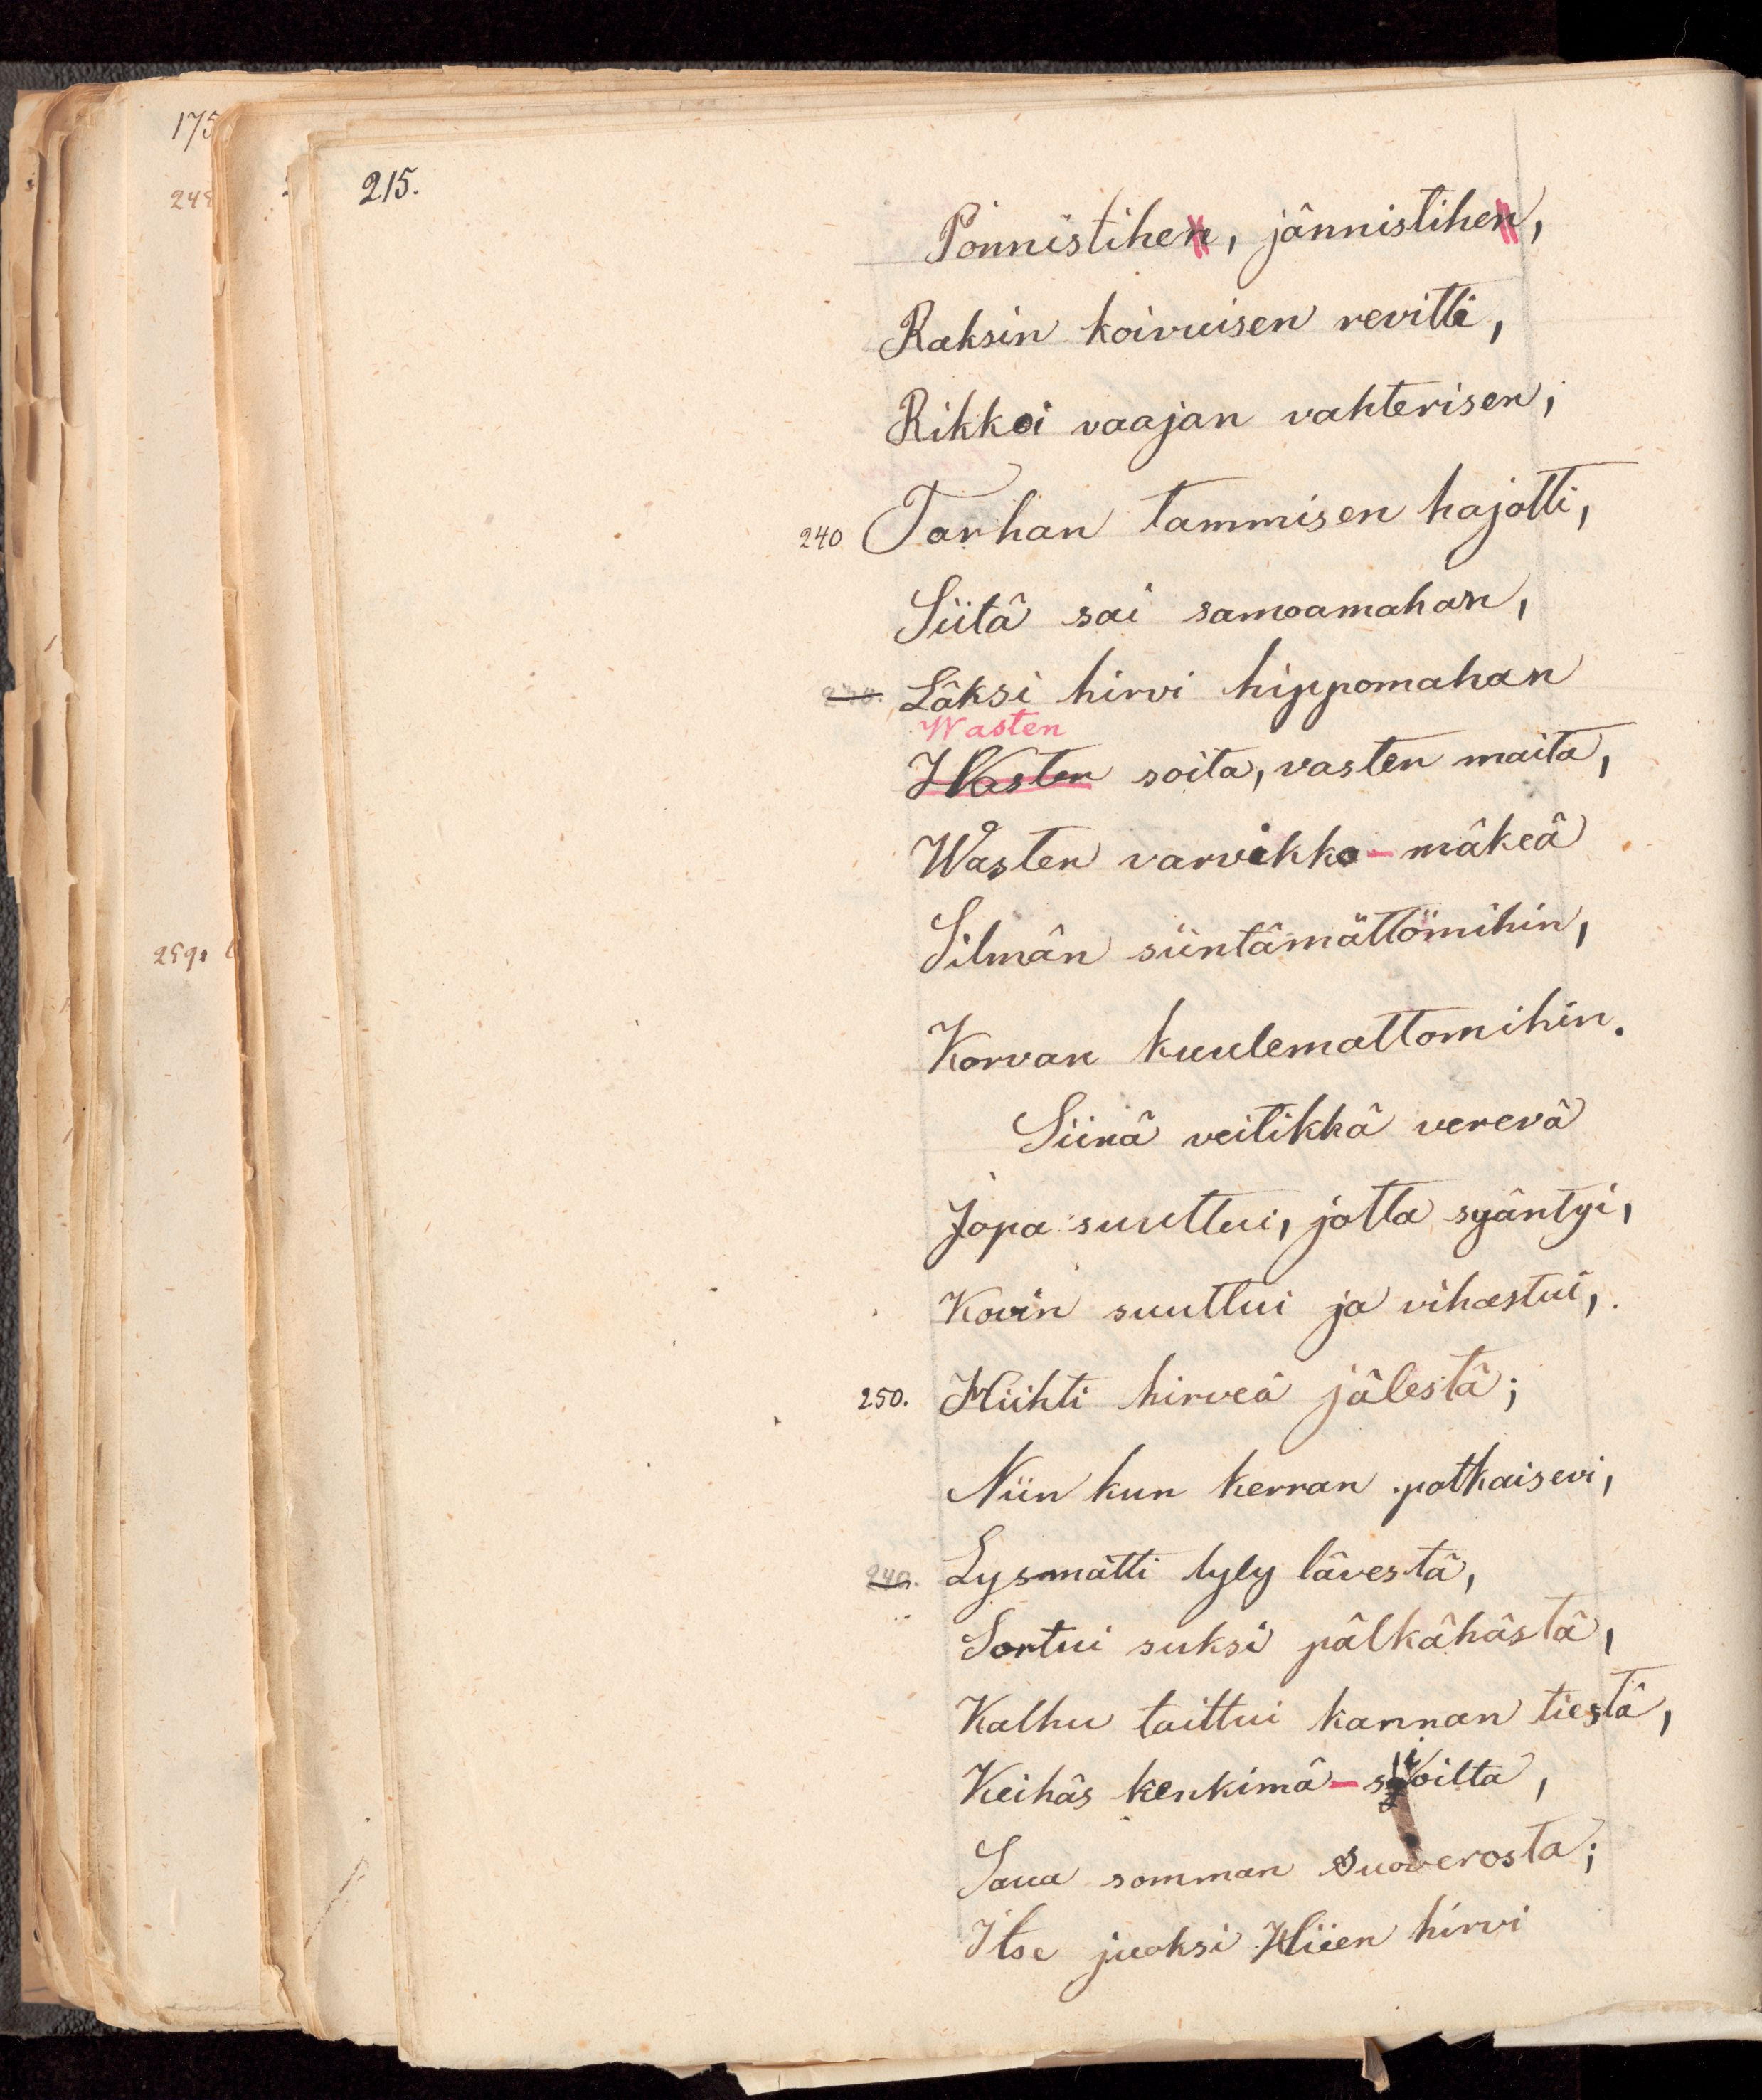 175
248
259.
215.
Ponnistihen, jännistihen,
Raksin koivuisen revitti,
Rikkoi vaajan vahterisen,
240 Tarhan tammisen hajotti,
Siitä sai samoamahan,
230. Läksi hirvi hippomahan
Wasten
soita, vasten maita,
Wasten varvikko-mäkeä
Silmän siintämättömihin,
Korvan kuulemattomihin.
Siinä veitikkä verevä
Jopa suuttui, jotta syäntyi,
Kovin suuttui ja vihastui,
250. Hiihti hirveä jälestä;
Niin kun kerran potkaisevi,
240. Lysmätti lyly lävestä,
Sortui suksi pälkähästä,
Kalhu taittui kannan tiestä,
Keihäs kenkimä-sioilta,
Saua somman suoverosta;
Itse juoksi Hiien hirvi